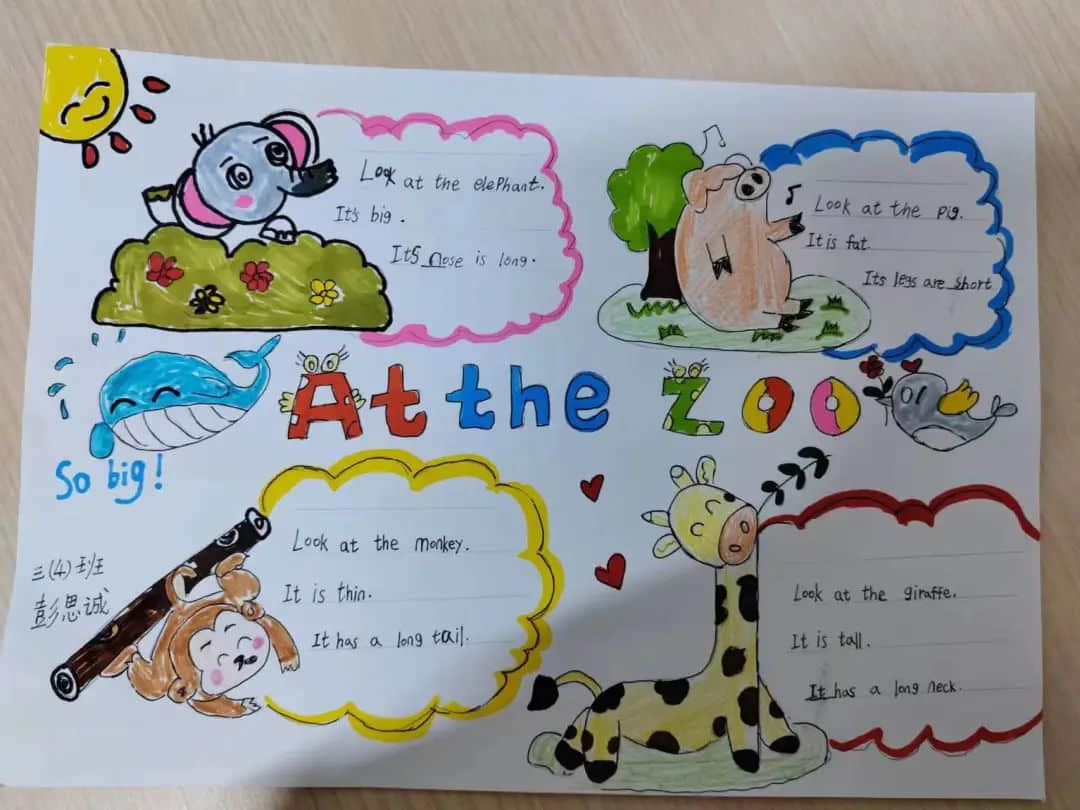 Look at the elephant.
It's big.
It's nose is long.
Look at the pig.
It is fat.
Its legs are short
At the Zoo
So big!
Look at the monkey.
It is thin.
It has a long tail.
三(4)班
彭思诚
Look at the giraffe.
It is tall.
It has a long neck.